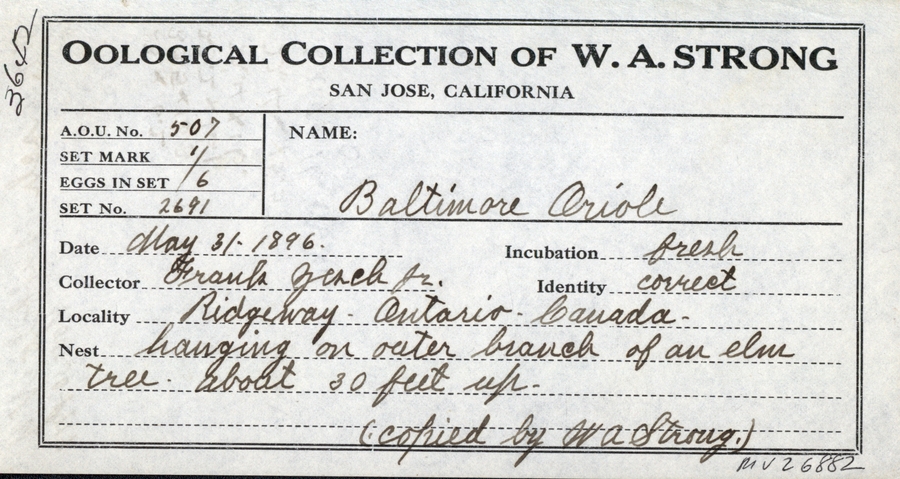 3652
OOLOGICAL COLLECTION OF W. A. STRONG
SAN JOSE, CALIFORNIA
A.O.U. No. 507
SET MARK 1/
EGGS IN SET /6
SET No. 2691
NAME:
Baltimore Oriole
Date May 31 - 1896.
Incubation fresh
Collector Frank Jr.
Identity correct
Locality Ridgeway - Ontario - Canada -
Nest hanging on outer branch of an elm
tree. about 30 feet up.
(copied by W A Strong.)
MV26882